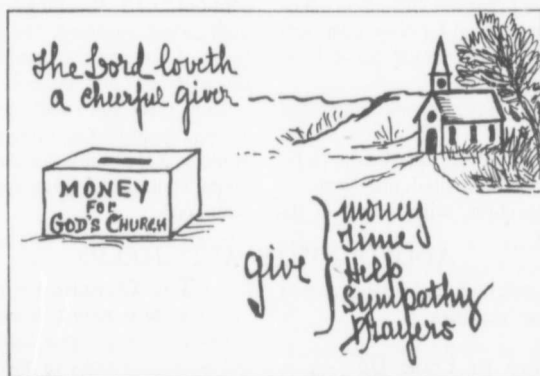 The Lord loveth
a cheerful giver
MONEY
FOR
GOD'S CHURCH
give
money
Time
Help
Sympathy
Prayers